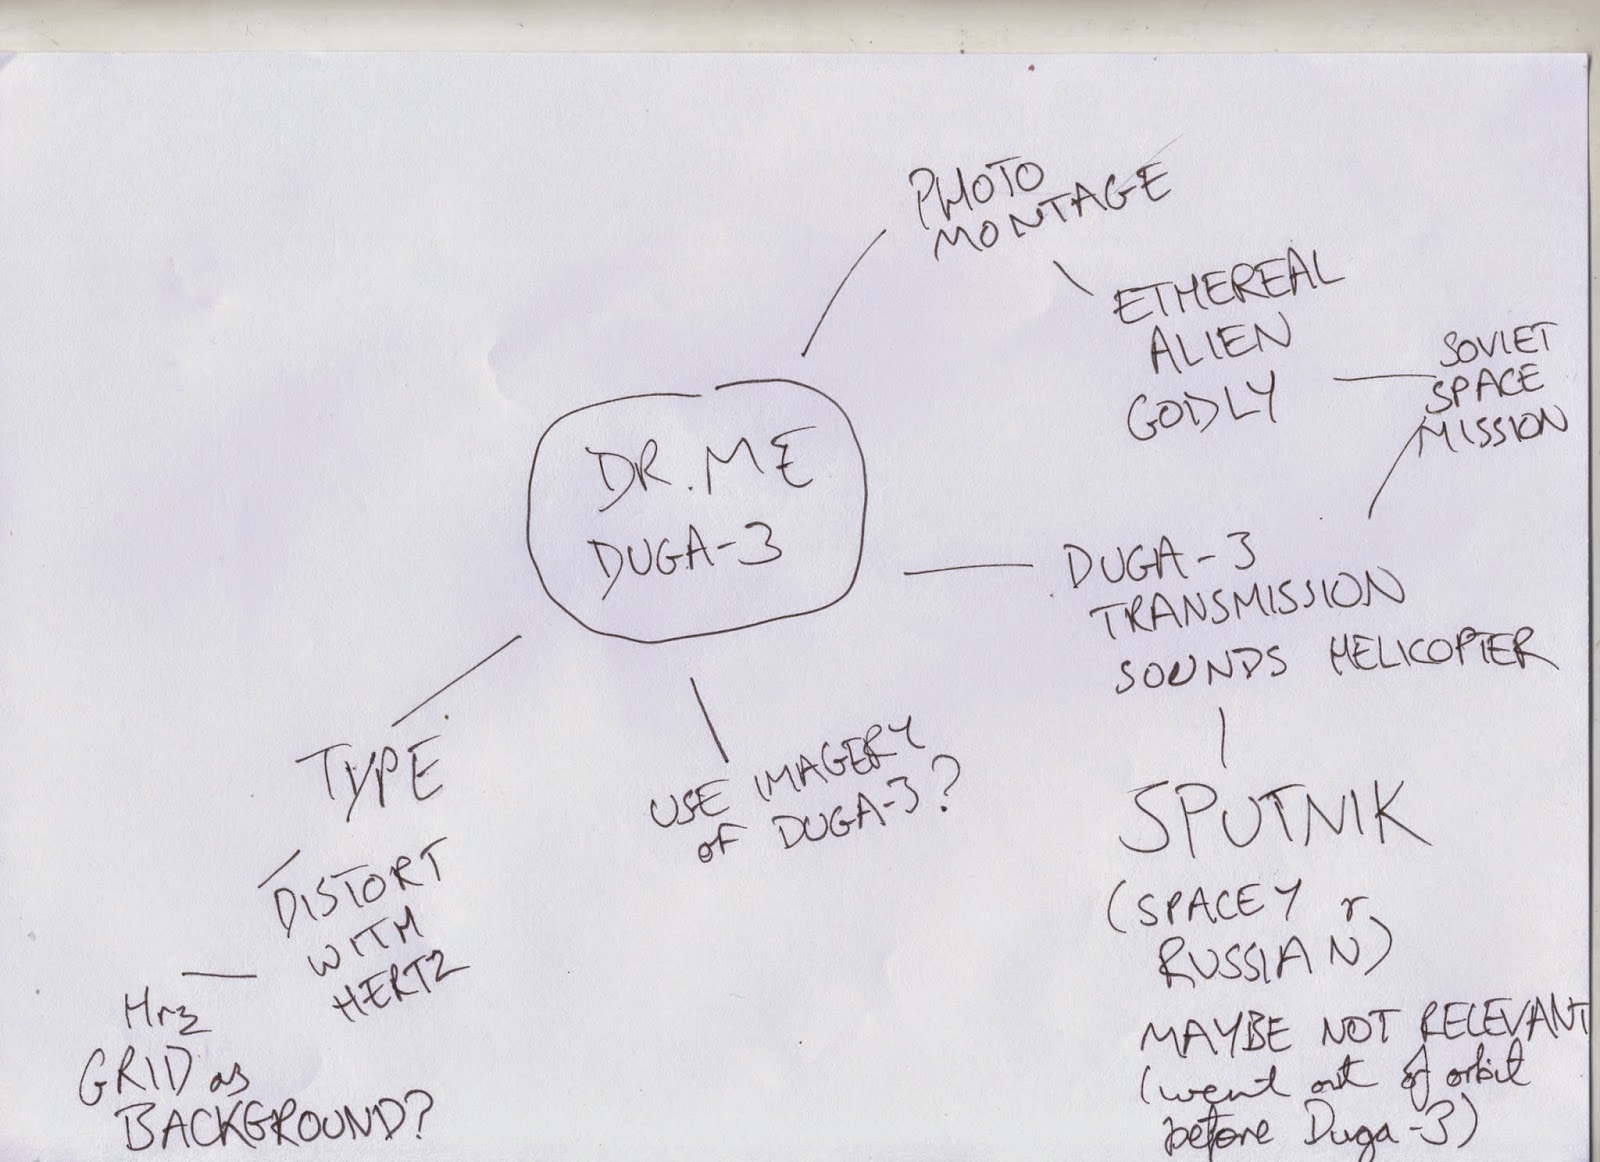 PHOTO
MONTAGE
ETHEREAL
ALIEN
GODLY
SOVIET
SPACE
MISSION
DR.ME
DUGA-3
DUGA-3
TRANSMISSION
SOUNDS HELICOPTER
SPUTNIK
(SPACEY r
RUSSIAN)
MAYBE NOT RELEVANT
(went out of orbit
before Duga-3)
USE IMAGERY
OF DUGA-3?
TYPE
DISTORT
WITH
HERTZ
Hrz
GRID as
BACKGROUND?